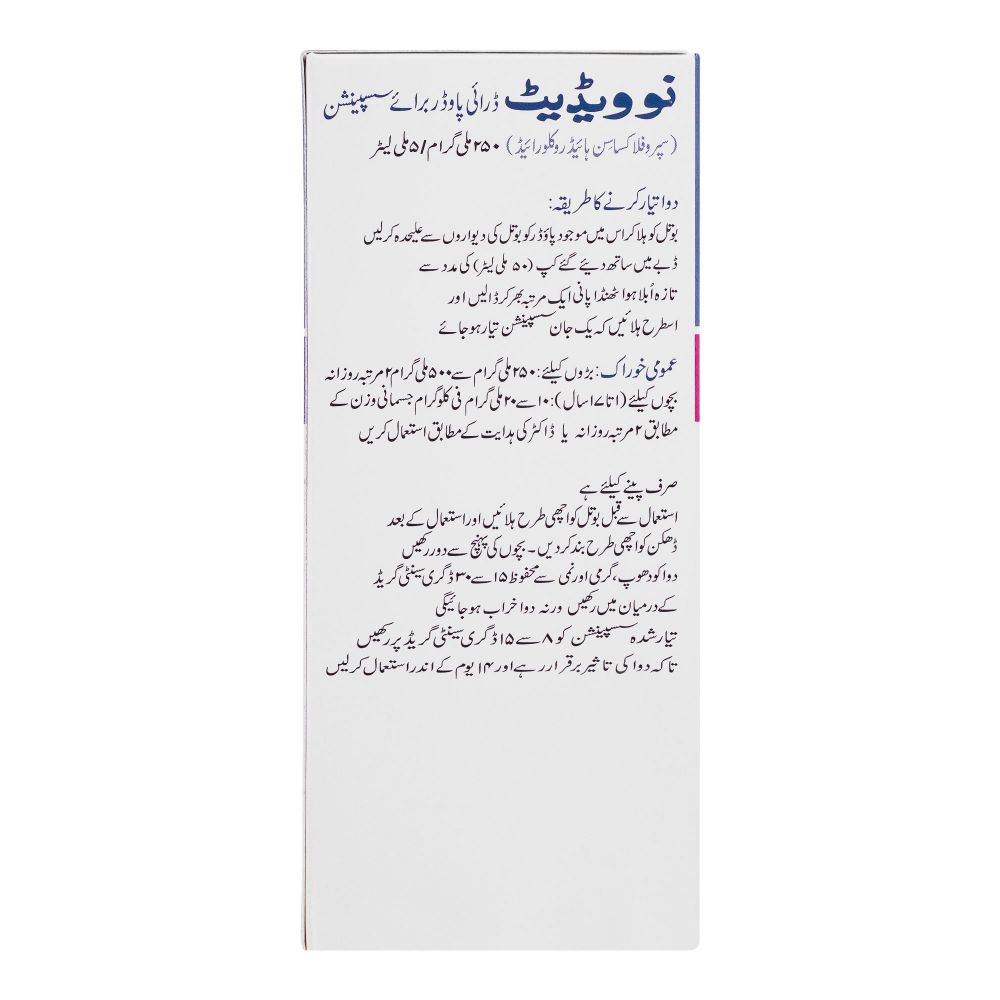 نوویڈیٹ ڈرائی پاوڈر برائے سسپینشن
(سپروفلاکساسِن ہائیڈروکلورائیڈ) ۲۵۰ ملی گرام/۵ ملی لیٹر
دوا تیار کرنے کا طریقہ:
بوتل کو ہلا کر اس میں موجود پاؤڈر کو بوتل کی دیواروں سے علیحدہ کرلیں
ڈبے میں ساتھ دیئے گئے کپ (۵۰ ملی لیٹر) کی مدد سے
تازہ اُبلا ہوا ٹھنڈا پانی ایک مرتبہ بھر کر ڈالیں اور
اسطرح ہلائیں کہ یک جان سسپینشن تیار ہوجائے
عمومی خوراک: بڑوں کیلئے: ۲۵۰ ملی گرام سے ۵۰۰ ملی گرام ۲ مرتبہ روزانہ
بچوں کیلئے (۱ تا ۱۷ سال): ۱۰ سے ۲۰ ملی گرام فی کلوگرام جسمانی وزن کے
مطابق ۲ مرتبہ روزانہ یا ڈاکٹر کی ہدایت کے مطابق استعمال کریں
صرف پینے کیلئے ہے
استعمال سے قبل بوتل کو اچھی طرح ہلائیں اور استعمال کے بعد
ڈھکن کو اچھی طرح بند کردیں۔ بچوں کی پہنچ سے دور رکھیں
دوا کو دھوپ، گرمی اور نمی سے محفوظ ۱۵ سے ۳۰ ڈگری سینٹی گریڈ
کے درمیان میں رکھیں ورنہ دوا خراب ہوجائیگی
تیار شدہ سسپینشن کو ۸ سے ۱۵ ڈگری سینٹی گریڈ پر رکھیں
تاکہ دوا کی تاثیر برقرار رہے اور ۱۴ یوم کے اندر استعمال کرلیں